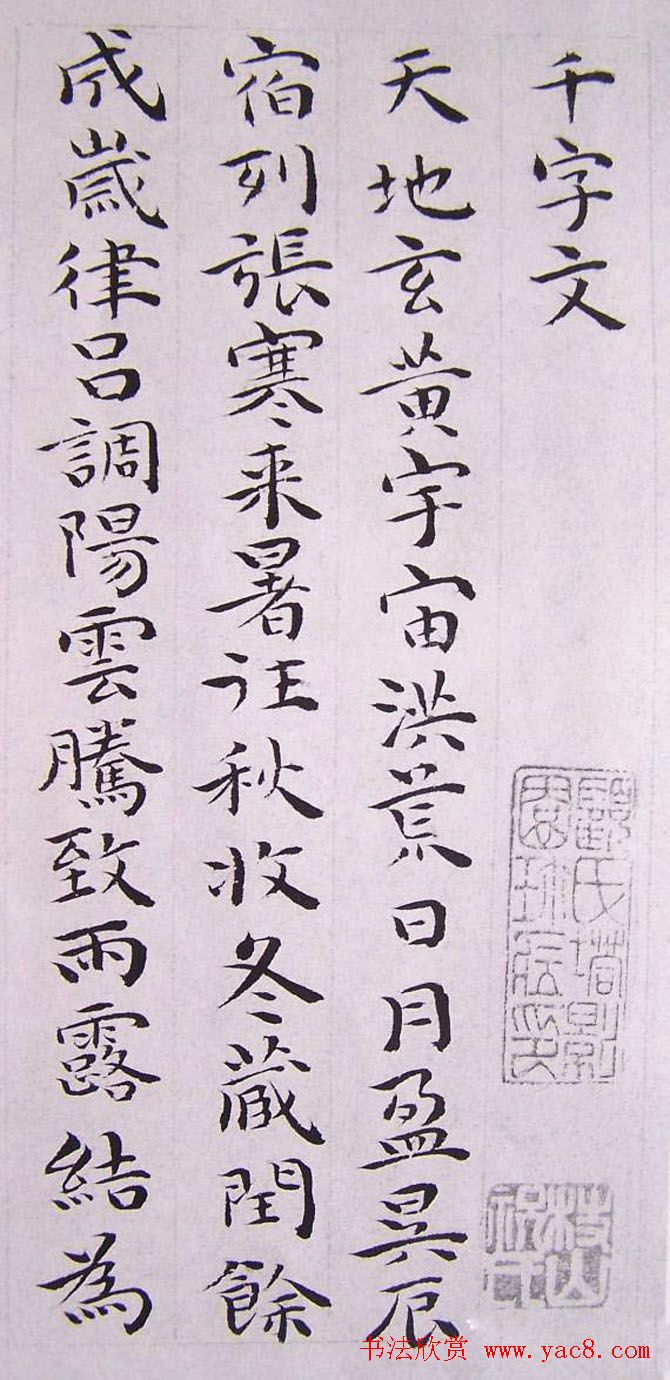 千字文
天地玄黄宇宙洪荒日月盈昃辰
宿列張寒来暑往秋收冬藏閏餘
成歲律吕調陽雲騰致雨露結為
顧氏塔影
園珍藏印
枝山
书法欣赏 www.yac8.com